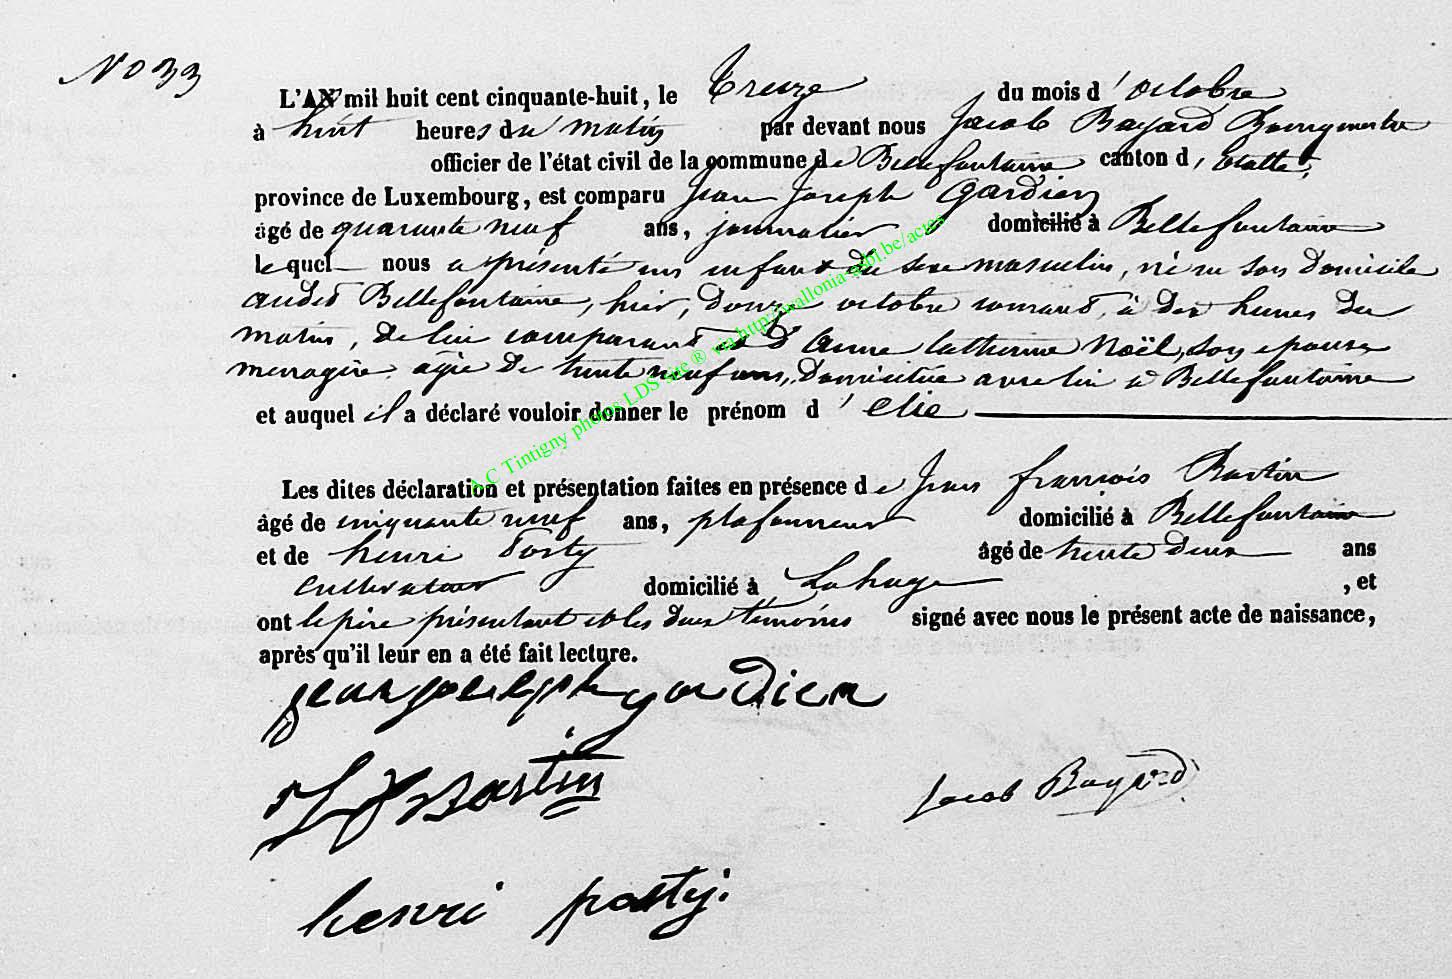 No 33
L'AN mil huit cent cinquante-huit, le treize du mois d'octobre
à huit heures du matin par devant nous Jacob Bayard Bourgmestre
officier de l'état civil de la commune de Bellefontaine canton d'Etalle,
province de Luxembourg, est comparu Jean Joseph Gardien
âgé de quarante neuf ans, journalier domicilié à Bellefontaine
lequel nous a présenté un enfant du sexe masculin, né en son domicile
audit Bellefontaine, hier, douze octobre courant, à dix heures du
matin, de lui comparant et d'Anne Catherine Noël, son épouse,
menagère agée de trente neuf ans, domiciliée avec lui à Bellefontaine
et auquel il a déclaré vouloir donner le prénom d'Elie
Les dites déclaration et présentation faites en présence de Jean François Bastin
âgé de cinquante neuf ans, plafonneur domicilié à Bellefontaine
et de henri Posty âgé de trente deux ans
cultivateur domicilié à Lahage, et
ont le père présentant et les deux témoins signé avec nous le présent acte de naissance,
après qu'il leur en a été fait lecture.
jean joseph gardien
J F Bastin
Jacob Bayard
henri posty.
A.C Tintigny photos LDS site ® via http://wallonia-asbl.be/actes